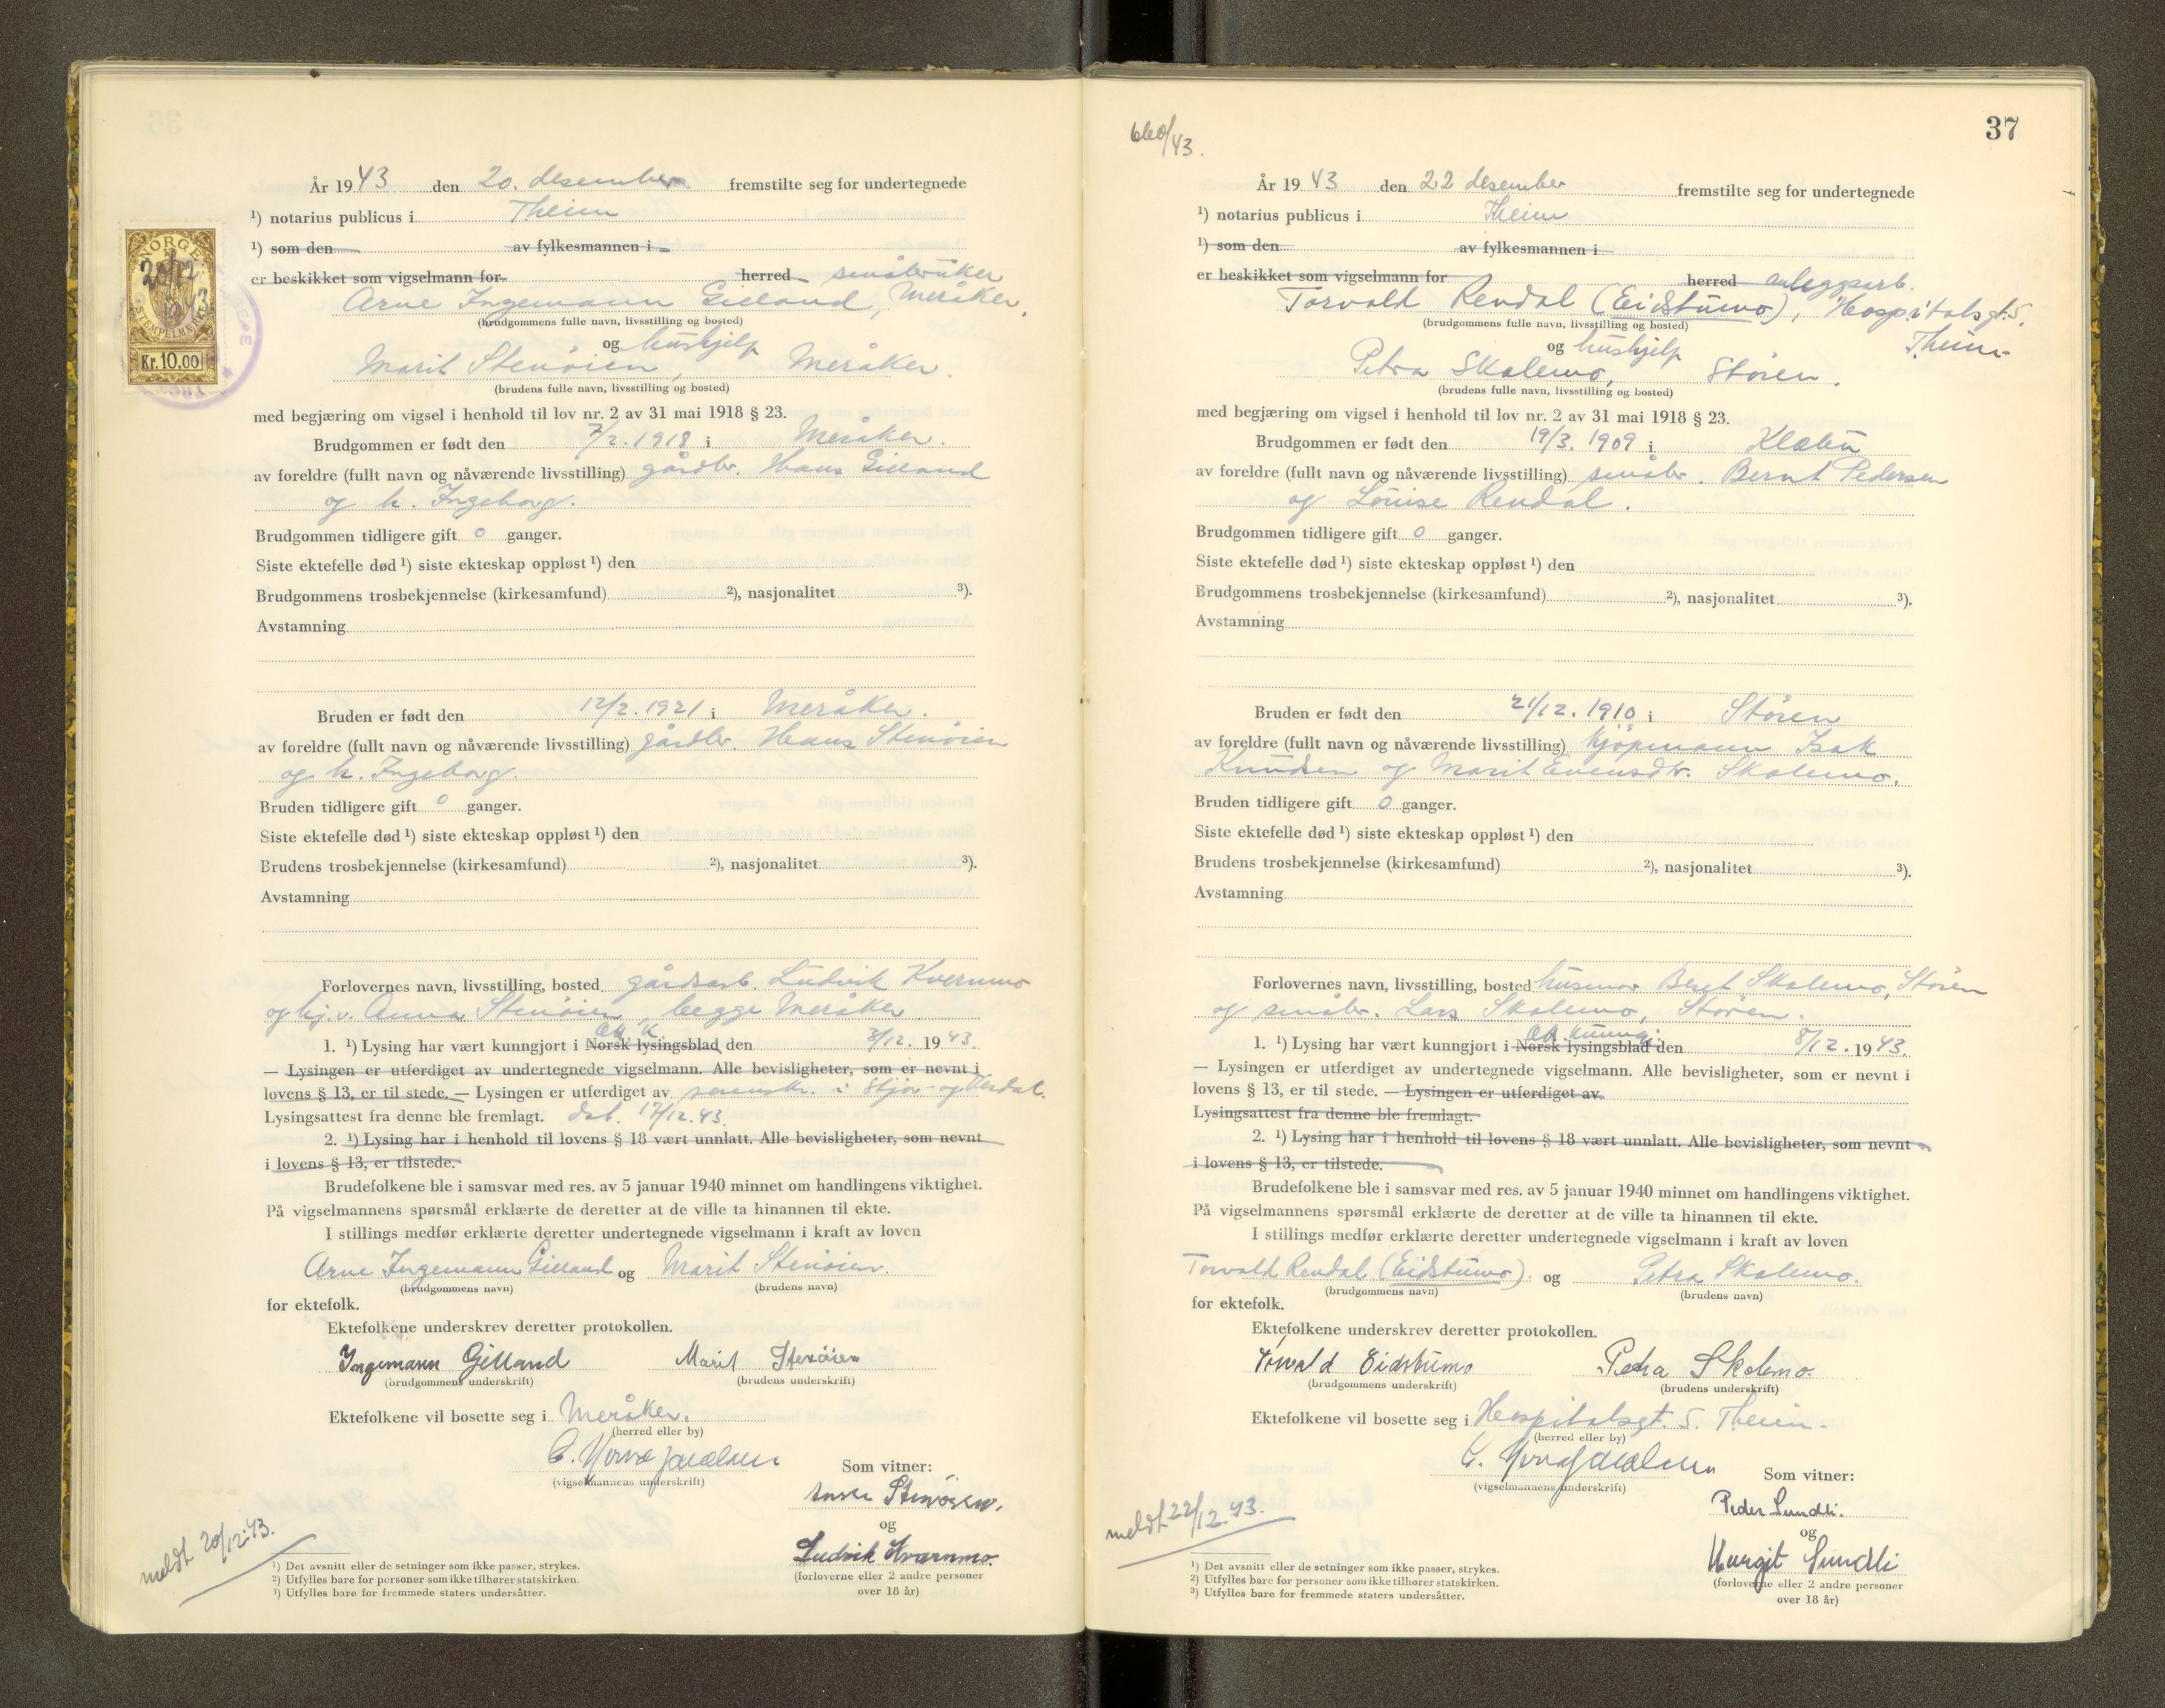 NORGE
20/12
43
STEMPELMERKE
Kr. 10.00
År 1943 den 20. desember fremstilte seg for undertegnede
¹) notarius publicus i Theim
¹) som den av fylkesmannen i
er beskikket som vigselmann for herred småbruker
Arne Ingemann Gilland, Meråker.
(brudgommens fulle navn, livsstilling og bosted)
og hushjelp
Marit Stenöien, Meråker.
(brudens fulle navn, livsstilling og bosted)
med begjæring om vigsel i henhold til lov nr. 2 av 31 mai 1918 § 23.
Brudgommen er født den 7/2. 1918 i Meråker.
av foreldre (fullt navn og nåværende livsstilling) gårdbr. Hans Gilland
og h. Ingeborg.
Brudgommen tidligere gift 0 ganger.
Siste ektefelle død ¹) siste ekteskap oppløst ¹) den
Brudgommens trosbekjennelse (kirkesamfund) ²), nasjonalitet ³).
Avstamning
Bruden er født den 12/2. 1921 i Meråker.
av foreldre (fullt navn og nåværende livsstilling) gårdbr. Hans Stenöien
og h. Ingeborg.
Bruden tidligere gift 0 ganger.
Siste ektefelle død ¹) siste ekteskap oppløst ¹) den
Brudens trosbekjennelse (kirkesamfund) ²), nasjonalitet ³).
Avstamning
Forlovernes navn, livsstilling, bosted gårdsarb. Ludvik Kvernmo
og hj. v. Anna Stenöien, begge Meråker
1. ¹) Lysing har vært kunngjort i Norsk lysingsblad den 3/12. 1943.
— Lysingen er utferdiget av undertegnede vigselmann. Alle bevisligheter, som er nevnt i
lovens § 13, er til stede. — Lysingen er utferdiget av sorenskr. i Stjør- og Verdal.
Lysingsattest fra denne ble fremlagt. dat. 17/12.43.
2. ¹) Lysing har i henhold til lovens § 18 vært unnlatt. Alle bevisligheter, som nevnt
i lovens § 13, er tilstede.
Brudefolkene ble i samsvar med res. av 5 januar 1940 minnet om handlingens viktighet.
På vigselmannens spørsmål erklærte de deretter at de ville ta hinannen til ekte.
I stillings medfør erklærte deretter undertegnede vigselmann i kraft av loven
Arne Ingemann Gilland og Marit Stenöien.
(brudgommens navn) (brudens navn)
for ektefolk.
Ektefolkene underskrev deretter protokollen.
Ingemann Gilland Marit Stenöien
(brudgommens underskrift) (brudens underskrift)
Ektefolkene vil bosette seg i Meråker.
(herred eller by)
(vigselmannens underskrift)
Som vitner:
Anna Stenöien.
og
Ludvik Kvernmo.
(forloverne eller 2 andre personer
over 18 år)
meldt 20/12.43.
¹) Det avsnitt eller de setninger som ikke passer, strykes.
²) Utfylles bare for personer som ikke tilhører statskirken.
³) Utfylles bare for fremmede staters undersåtter.
660/43.
37
År 1943 den 22 desember fremstilte seg for undertegnede
¹) notarius publicus i Theim
¹) som den av fylkesmannen i
er beskikket som vigselmann for herred anleggsarb.
Torvald Rendal (Eidstumo), Hospitalsgt. 5,
Theim
(brudgommens fulle navn, livsstilling og bosted)
og hushjelp
Petra Skolemo, Støren.
(brudens fulle navn, livsstilling og bosted)
med begjæring om vigsel i henhold til lov nr. 2 av 31 mai 1918 § 23.
Brudgommen er født den 19/3. 1909 i Klæbu
av foreldre (fullt navn og nåværende livsstilling) småbr. Bernt Pedersen
og Louise Rendal.
Brudgommen tidligere gift 0 ganger.
Siste ektefelle død ¹) siste ekteskap oppløst ¹) den
Brudgommens trosbekjennelse (kirkesamfund) ²), nasjonalitet ³).
Avstamning
Bruden er født den 21/12. 1910 i Støren
av foreldre (fullt navn og nåværende livsstilling) kjøpmann Isak
Knudsen og Marit Evensdtr. Skolemo.
Bruden tidligere gift 0 ganger.
Siste ektefelle død ¹) siste ekteskap oppløst ¹) den
Brudens trosbekjennelse (kirkesamfund) ²), nasjonalitet ³).
Avstamning
Forlovernes navn, livsstilling, bosted husmor Beret Skolemo, Støren
og småbr. Lars Skolemo, Støren.
1. ¹) Lysing har vært kunngjort i Norsk lysingsblad den 8/12. 1943.
— Lysingen er utferdiget av undertegnede vigselmann. Alle bevisligheter, som er nevnt i
lovens § 13, er til stede. — Lysingen er utferdiget av
Lysingsattest fra denne ble fremlagt.
2. ¹) Lysing har i henhold til lovens § 18 vært unnlatt. Alle bevisligheter, som nevnt
i lovens § 13, er tilstede.
Brudefolkene ble i samsvar med res. av 5 januar 1940 minnet om handlingens viktighet.
På vigselmannens spørsmål erklærte de deretter at de ville ta hinannen til ekte.
I stillings medfør erklærte deretter undertegnede vigselmann i kraft av loven
Torvald Rendal (Eidstumo). og Petra Skolemo.
(brudgommens navn) (brudens navn)
for ektefolk.
Ektefolkene underskrev deretter protokollen.
Torvald Eidstumo Petra Skolemo.
(brudgommens underskrift) (brudens underskrift)
Ektefolkene vil bosette seg i Hospitalsgt. 5. Theim.
(herred eller by)
(vigselmannens underskrift)
Som vitner:
Peder Sundli.
og
Margit Sundli
(forloverne eller 2 andre personer
over 18 år)
meldt 22/12.43.
¹) Det avsnitt eller de setninger som ikke passer, strykes.
²) Utfylles bare for personer som ikke tilhører statskirken.
³) Utfylles bare for fremmede staters undersåtter.